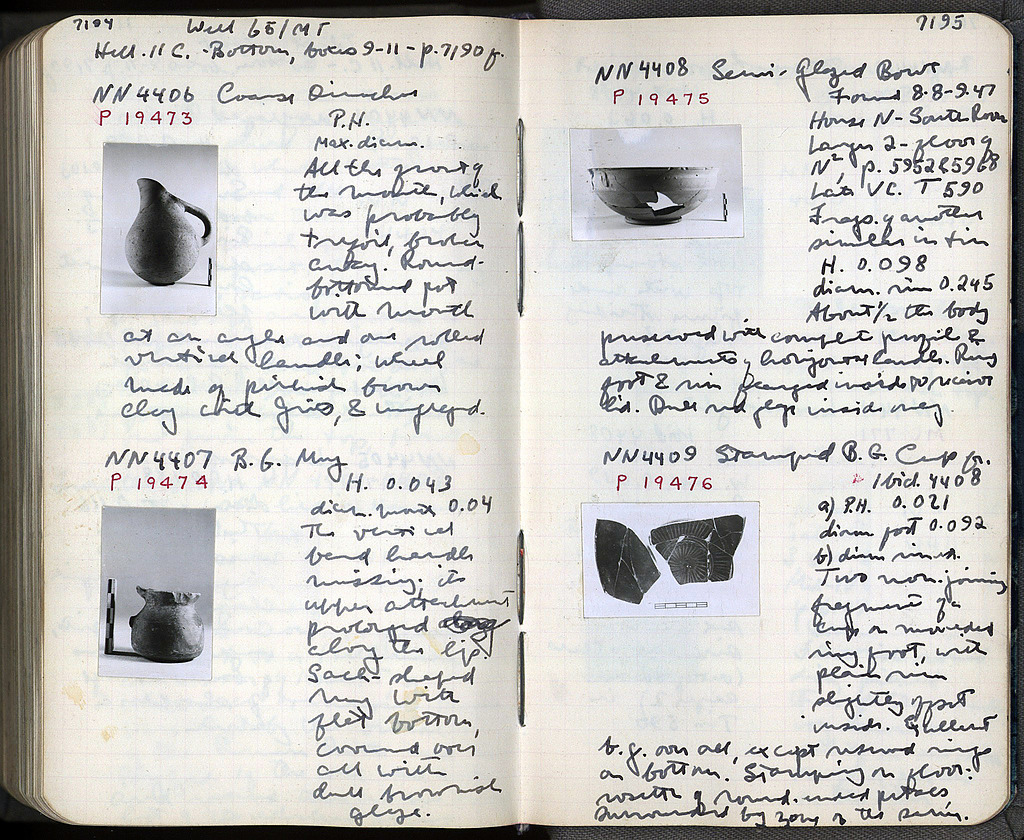 7194 Well 65/MT
Hell. II C. Bottom, boxes 9-11 - p. 7190 f.
NN 4406 Coarse Oinochoe
P 19473
P.H.
Max. diam.
All the front of
the mouth, which
was probably
trefoil, broken
away. Round-
bottomed pot
with mouth
at an angle and one rolled
vertical handle; wheel
made of pinkish brown
clay with grits, & unglazed.
NN 4407 B.G. Mug
P 19474
H. 0.043
diam. mouth 0.04
The vertical
band handle
missing; its
upper attachment
prolonged
along the lip.
Sack-shaped
mug with
flat bottom,
covered over
all with
dull brownish
glaze.
7195
NN 4408 Semi-Glazed Bowl
P 19475
Found 8-8-9.47
House N - South Room
Layer 2 - floor of
N², p. 5952 & 5968
Late V C. T 590
Frags. of another
similar in tin
H. 0.098
diam. rim 0.245
About 1/2 the body
preserved with complete profile &
attachments of horizontal handle. Ring
foot & rim flanged inside to receive
lid. Dull red glaze inside only.
NN 4409 Stamped B.G. Cup fr.
P 19476
Ibid. 4408
a) P.H. 0.021
diam foot 0.092
b) diam. max.
Two non-joining
fragments of a
cup on moulded
ring foot, with
plain rim
slightly offset
inside. Excellent
b.g. over all, except reserved rings
on bottom. Stamping on floor:
rosette of round-ended petals
surrounded by zone of the same.